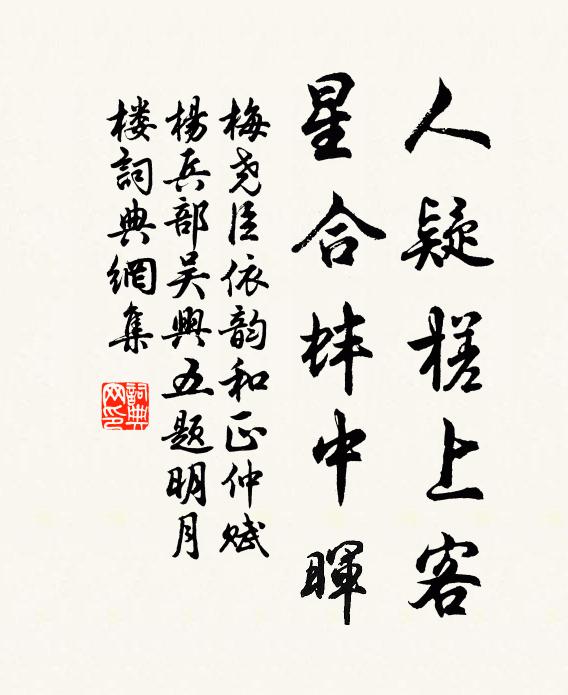 人疑槎上客
星合蚌中暉
梅尧臣依韵和正仲赋
楊兵部吴興五题明月
楼詞典網集
詞典网印